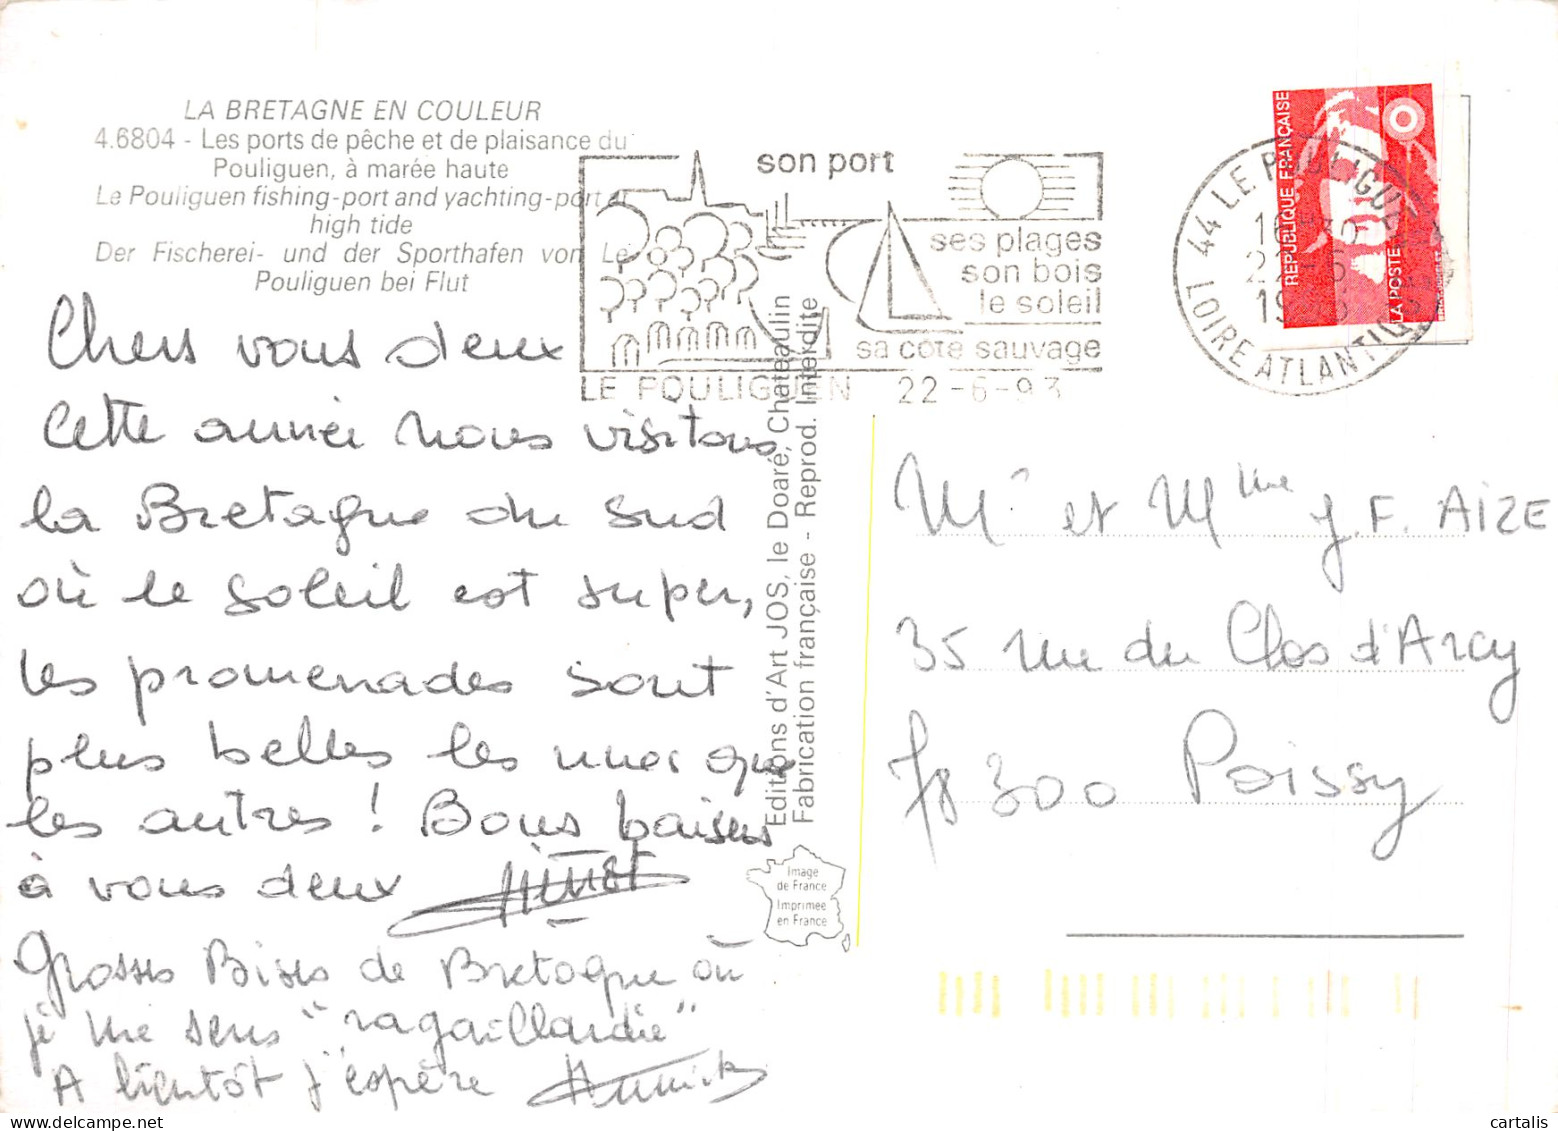 LA BRETAGNE EN COULEUR
4.6804 - Les ports de pêche et de plaisance du
Pouliguen, à marée haute
Le Pouliguen fishing-port and yachting-port at
high tide
Der Fischerei- und der Sporthafen von Le
Pouliguen bei Flut
son port
ses plages
son bois
le soleil
sa côte sauvage
LE POULIGUEN 22-6-93
44 LE POULIGUEN
22-6
LOIRE ATLANTIQUE
REPUBLIQUE FRANÇAISE
LA POSTE
Chers vous deux
Cette année nous visitons
la Bretagne du sud
où le soleil est super,
les promenades sont
plus belles les unes que
les autres ! Bons baisers
à vous deux
Grosses Bises de Bretagne où
je me sens "ragaillardie"
A bientôt j'espère Annick
Editions d'Art JOS, le Doaré, Châteaulin
Fabrication française - Reprod. Interdite
Image
de France
Imprimée
en France
Mr et Mme J.F. AIZE
35 rue du Clos d'Arcy
78300 Poissy
cartalis